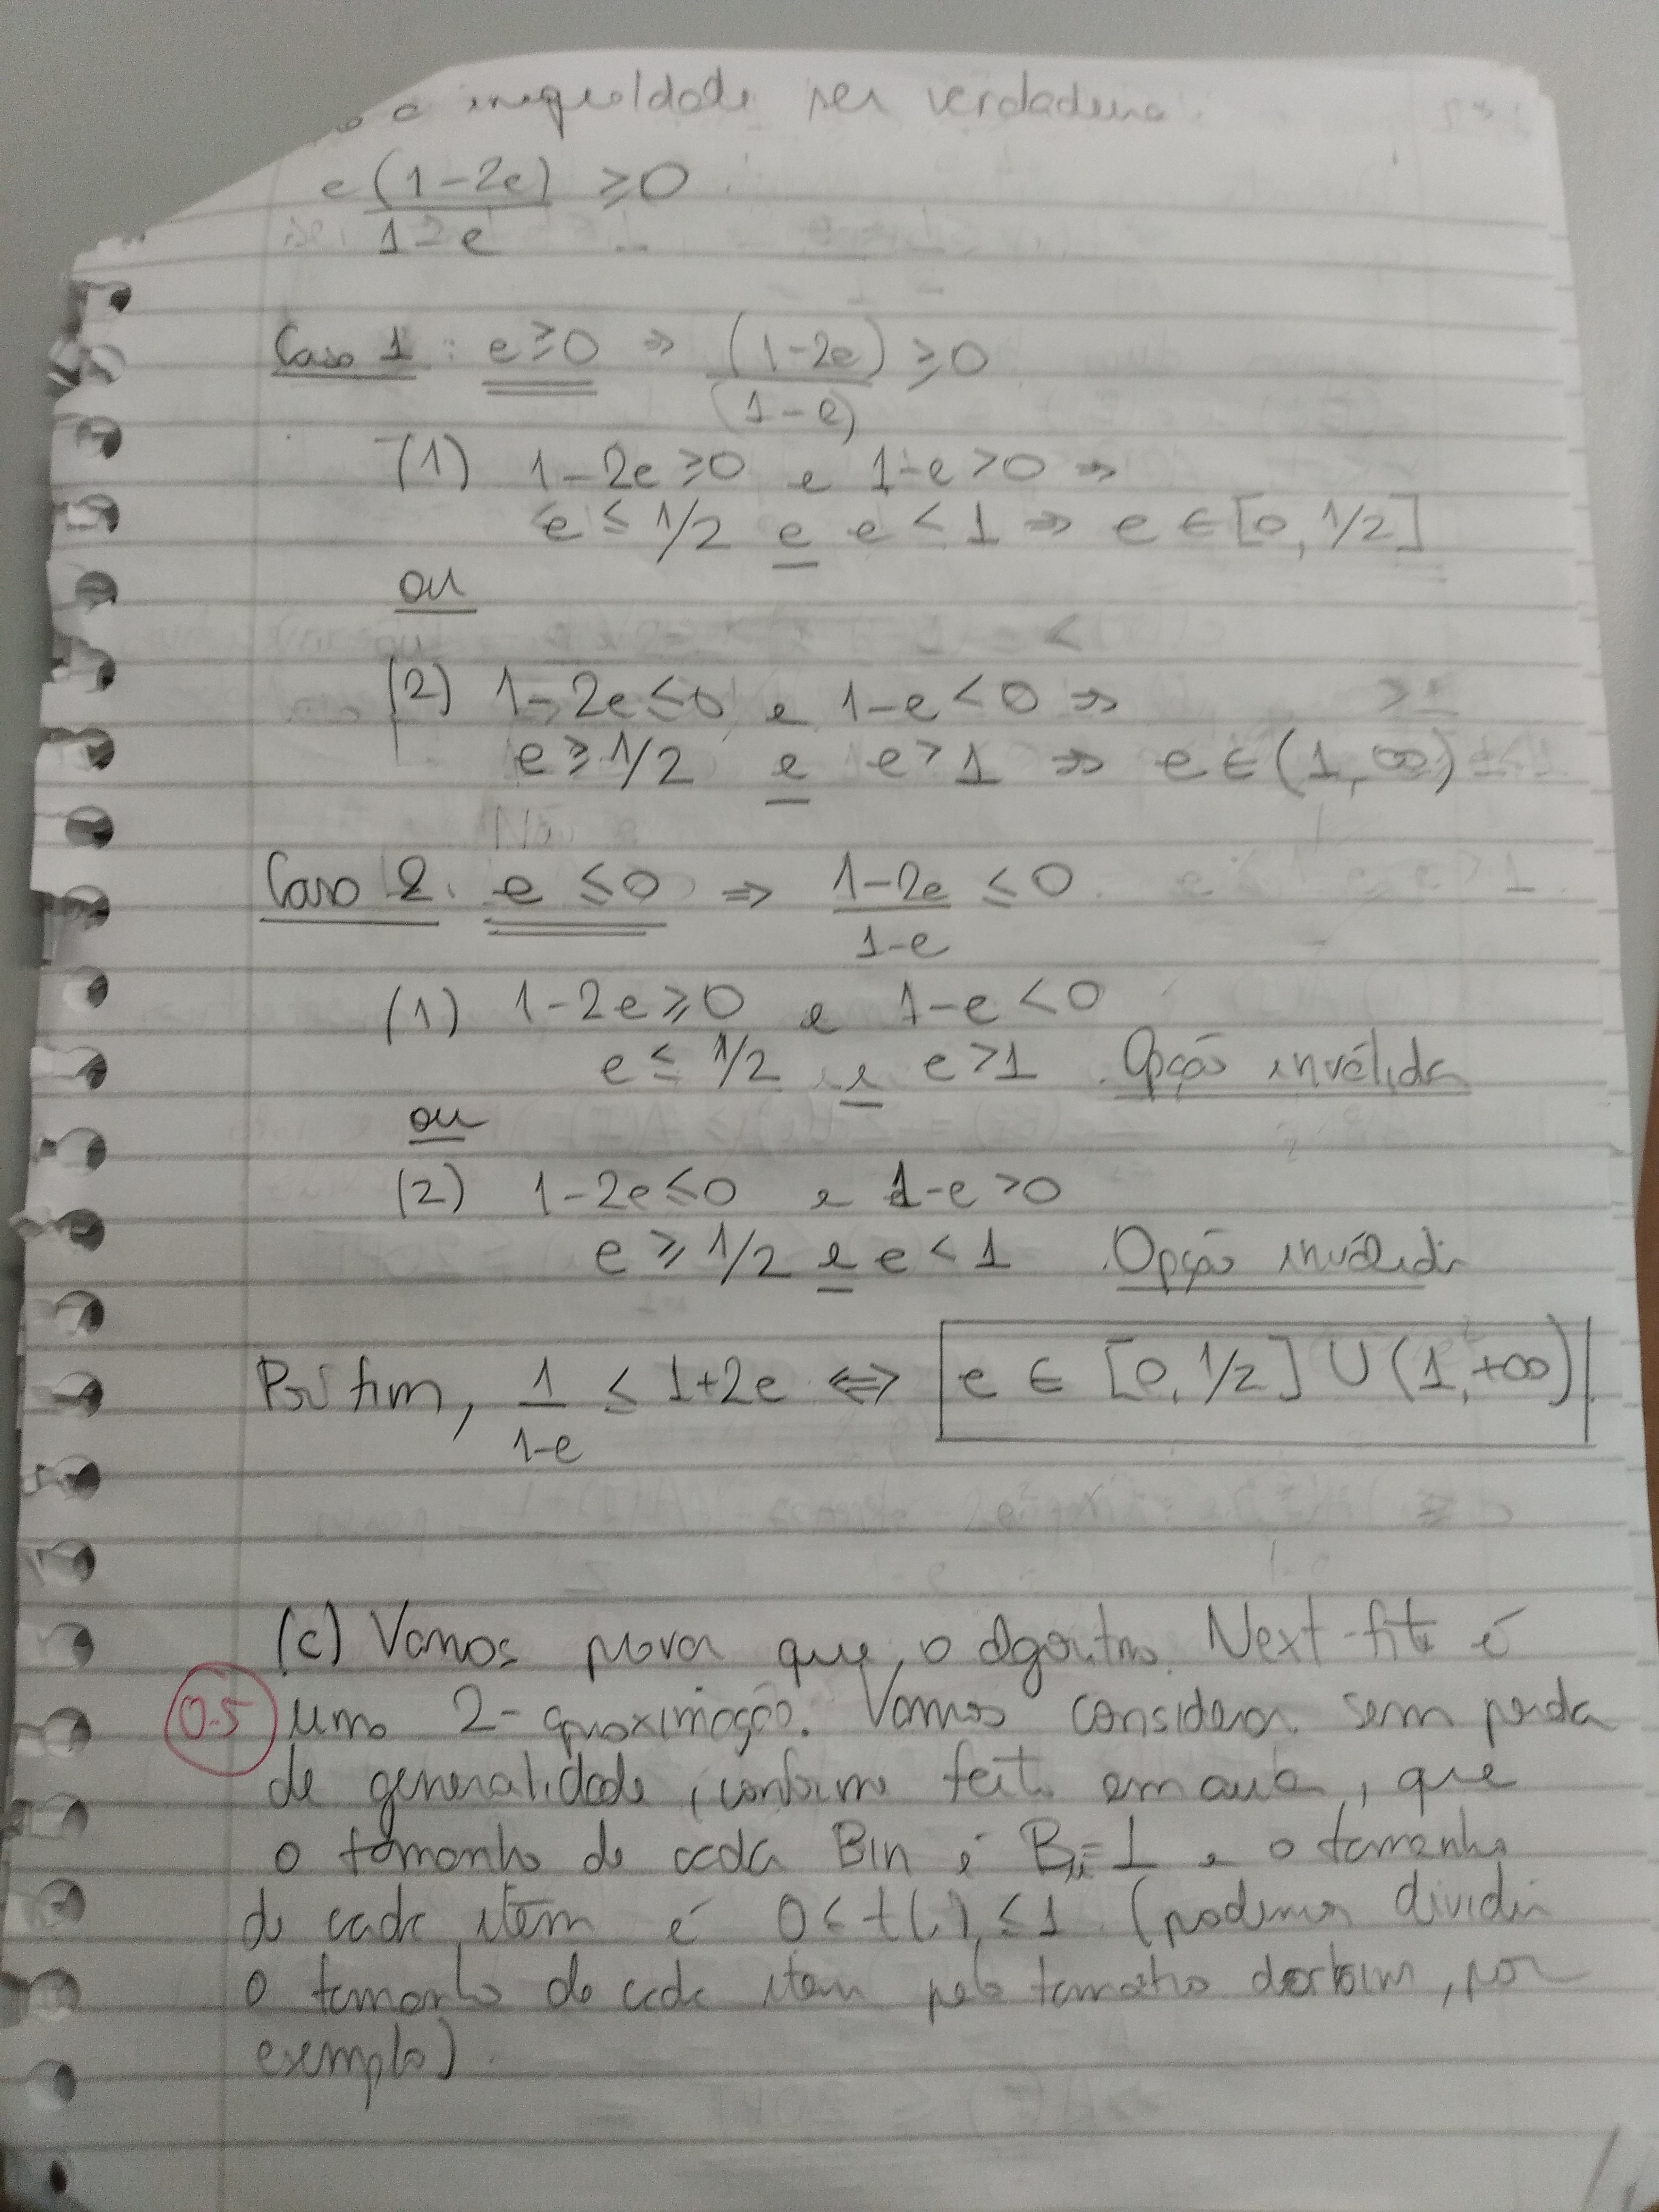 a inequaldade ser verdadeira:
e (1-2e) ≥ 0
1-e
Caso 1: e ≥ 0 ⇒ (1-2e) ≥ 0
(1-e)
(1) 1-2e ≥ 0 e 1-e > 0 ⇒
e ≤ 1/2 e e < 1 ⇒ e ∈ [0, 1/2]
ou
(2) 1-2e ≤ 0 e 1-e < 0 ⇒
e ≥ 1/2 e e > 1 ⇒ e ∈ (1, ∞)
Caso 2. e ≤ 0 ⇒ 1-2e ≤ 0
1-e
(1) 1-2e ≥ 0 e 1-e < 0
e ≤ 1/2 e e > 1 . Opção inválida
ou
(2) 1-2e ≤ 0 e 1-e > 0
e ≥ 1/2 e e < 1 . Opção inválida
Por fim, 1 ≤ 1+2e ⇔ e ∈ [0, 1/2] ∪ (1, +∞)
1-e
(c) Vamos provar que o algoritmo Next-fit é
0.5 uma 2-aproximação. Vamos considerar sem perda
de generalidade, conforme feito em aula, que
o tamanho de cada Bin é B = 1 e o tamanho
de cada item é 0 ≤ t(i) ≤ 1 (podemos dividir
o tamanho de cada item pelo tamanho do bin, por
exemplo).